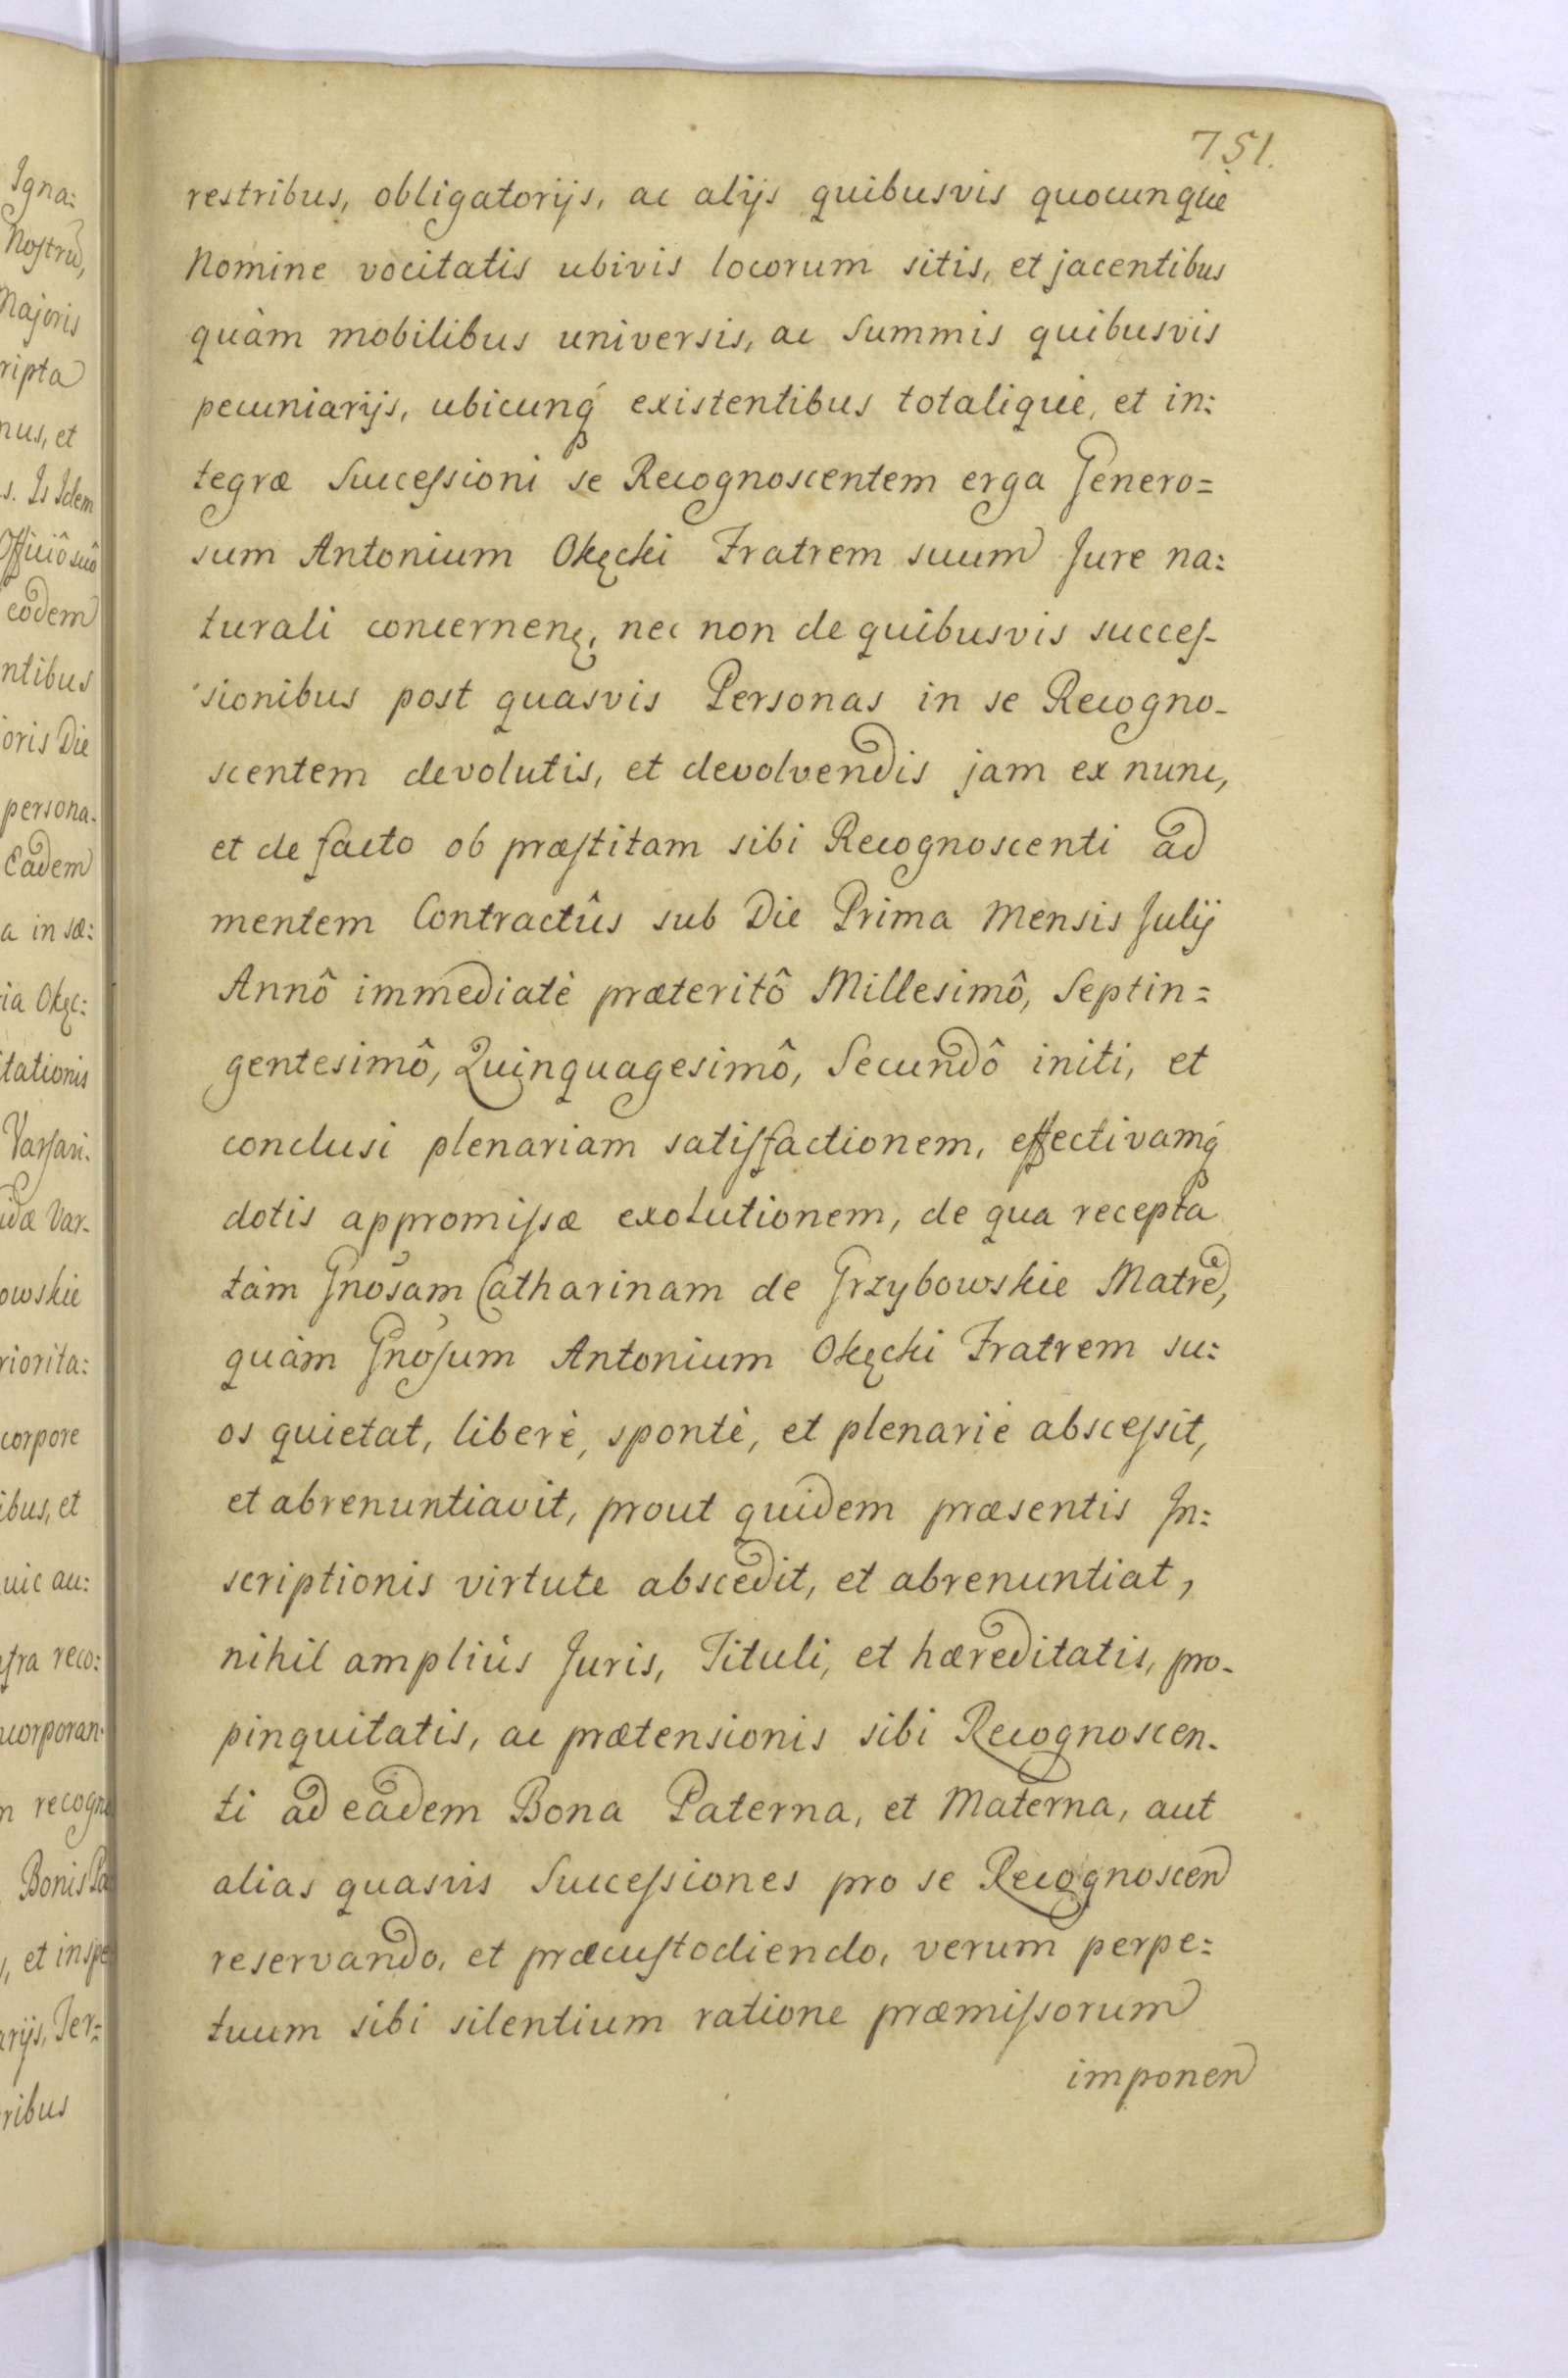 751.
restribus, obligatorijs, ac alijs quibusvis quocunquè
Nomine vocitatis ubivis locorum sitis, et jacentibus
quàm mobilibus universis, ac Summis quibusvis
pecuniarijs, ubicunq́ existentibus totaliquè, et in:
tegræ Succeſsioni se Recognoscentem erga Genero=
sum Antonium Okęcki Fratrem suum Jure na:
turali concernenę, nec non de quibusvis succeſ-
sionibus post quasvis Personas in se Recogno-
scentem devolutis, et devolvendis jam ex nunc,
et de facto ob præſtitam sibi Recognoscenti ad
mentem Contractûs sub Die Prima Mensis Julij
Annô immediatè præteritô Millesimô, Septin=
gentesimô, Quinquagesimô, Secundô initi, et
conclusi plenariam satiſfactionem, effectivamq́
dotis appromiſsæ exolutionem, de qua recepta
tàm Gnosam Catharinam de Grzybowskie Matre,
quàm Gnoſum Antonium Okęcki Fratrem su:
os quietat, liberè, spontè, et plenariè absceſsit,
et abrenuntiavit, prout quidem præsentis In:
scriptionis virtute abscedit, et abrenuntiat,
nihil ampliùs Juris, Tituli, et hæreditatis, pro-
pinquitatis, ac prætensionis sibi Recognoscen-
ti ad eadem Bona Paterna, et Materna, aut
alias quasvis Succeſsiones pro se Recognoscen
reservando, et præcuſtodiendo, verum perpe:
tuum sibi silentium ratione præmiſsorum
imponen
Igna:
Nostrũ,
Majoris
ripta
nus, et
s. Is Idem
Officiô suô
eodem
ntibus
oris Die
persona-
Eadem
a in sæ:
ia Okęc:
tationis
Varſavi.
idæ Var-
owskie
riorita:
corpore
ibus, et
uic au:
fra reco:
ncorporan-
n recogn
Bonis Pa
, et inspe
arijs, Ter=
ribus